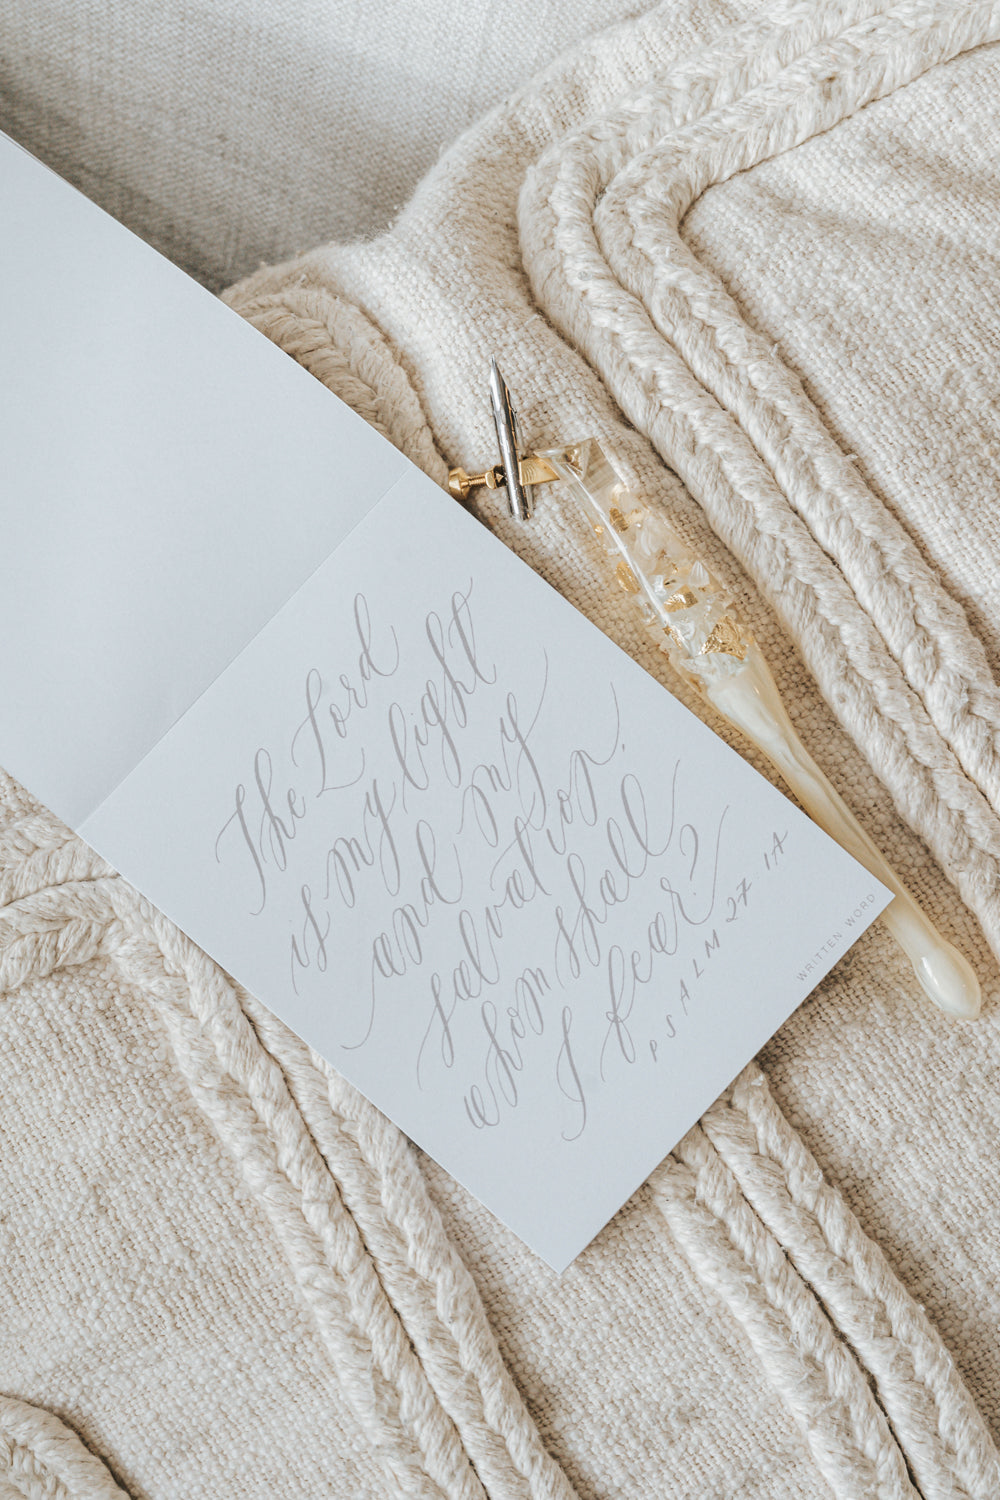 The Lord
is my light
and my
salvation.
whom shall
I fear?
PSALM 27 · 1A
WRITTEN WORD